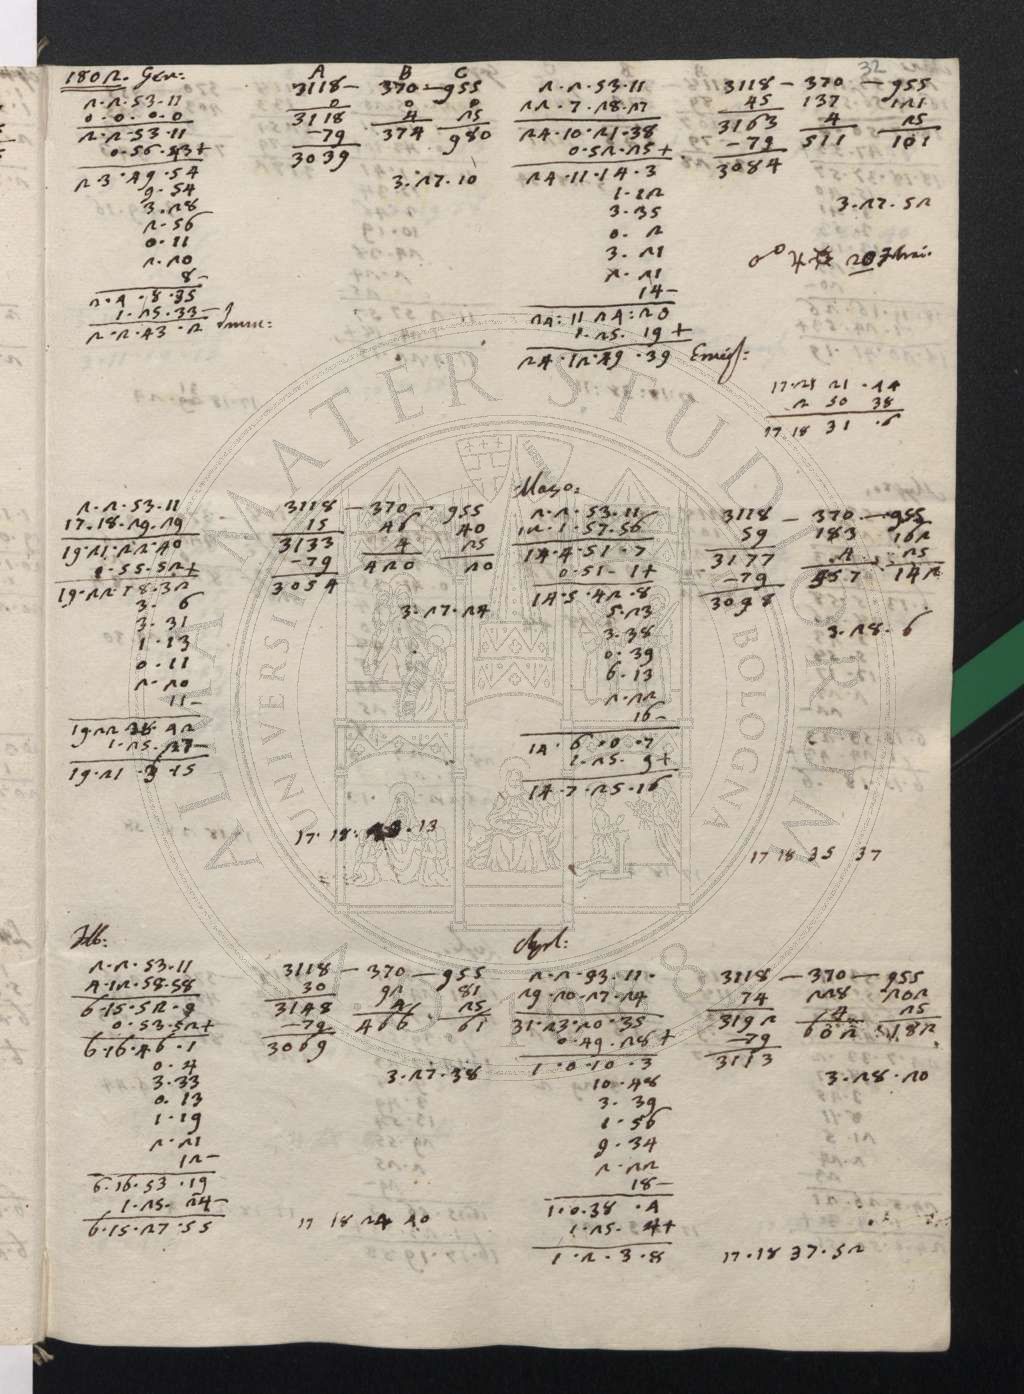 1802. Gen:
2.2.53.11
0.0.0.0
2.2.53.11
0.56.43+
2.3.49.54
9.54
3.28
2.56
0.11
2.20
8-
2.4.8.35
1.25.33-
2.2.43.2 Imm:
A B C
3118 — 370 — 955
0 0 0
3118 4 25
-79 374 980
3039
3.27.10
32
2.2.53.11
22.7.28.27
24.10.21.38
0.52.25+
24.11.14.3
1.12
3.35
0.2
3.21
2.21
14-
24:11 24:20
1.25.19+
24.12.49.39 Emers:
3118 — 370 — 955
45 137 121
3163 4 25
-79 511 101
3084
3.27.52
20 Febrai.
17.21 21.44
2 50 38
17.18 31.6
2.2.53.11
17.18.29.29
19.21.22.40
0.55.52+
19.22.18.32
3.6
3.31
1.13
0.11
2.20
11-
19.22 28.42
1.25.27-
19.21.3.15
3118 — 370 — 955
15 46 40
3133 4 25
-79 420 20
3054
3.27.24
17.18: 23.13
Marzo:
2.2.53.11
12.1.57.56
14.4.51.7
0.51-1+
14.5.42.8
5.23
3.38
0.39
6.13
2.22
16-
14.6.0.7
1.25.9+
14.7.25.16
3118 — 370 — 955
59 183 162
3177 4 25
-79 557 142
3098
3.28.6
17 18 35 37
Feb:
2.2.53.11
4.12.58.58
6.15.52.9
0.53.52+
6.16.46.1
0.4
3.33
0.13
1.19
2.21
12-
6.16.53.19
1.25.24-
6.15.27.55
3118 — 370 — 955
30 92 81
3148 4 25
-79 466 61
3069
3.27.38
17 18 24 40
Aprl:
2.2.53.11
29.20.27.24
31.23.20.35
0.49.28+
1.0.10.3
10.48
3.39
1.56
9.34
2.22
18-
1.0.38.4
1.25.4+
1.2.3.8
3118 — 370 — 955
74 228 202
3192 4 25
-79 602 182
3113
3.28.20
17.18 37.52
ALMA MATER STUDIORUM
UNIVERSITÀ
BOLOGNA